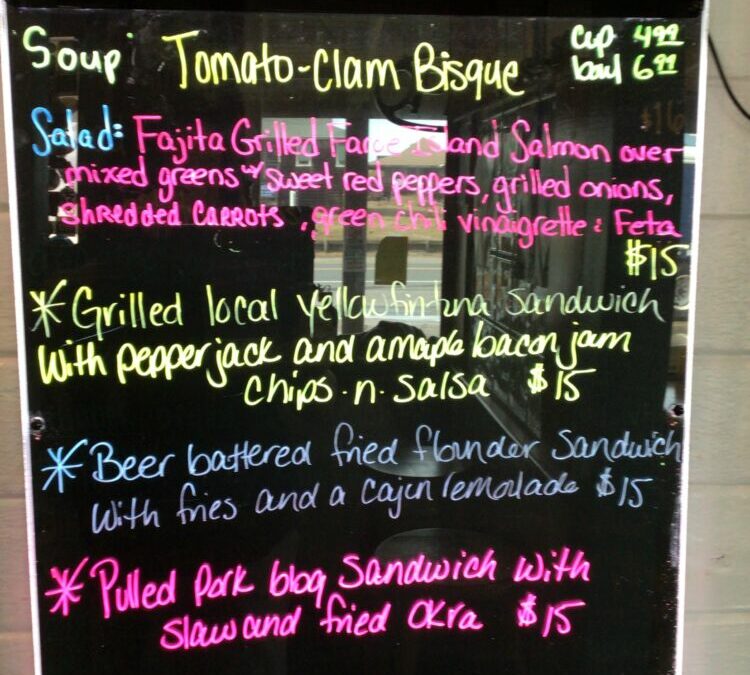 Soup: Tomato-Clam Bisque cup 4.99
bowl 6.99
Salad: Fajita Grilled Faroe Island Salmon over
mixed greens w/ sweet red peppers, grilled onions,
shredded CARROTS, green chili vinaigrette & Feta
$15
*Grilled local yellowfin tuna sandwich
with pepperjack and a maple bacon jam
chips-n-salsa $15
*Beer battered fried flounder sandwich
with fries and a cajun remoulade $15
*Pulled Pork bbq Sandwich with
slaw and fried okra $15